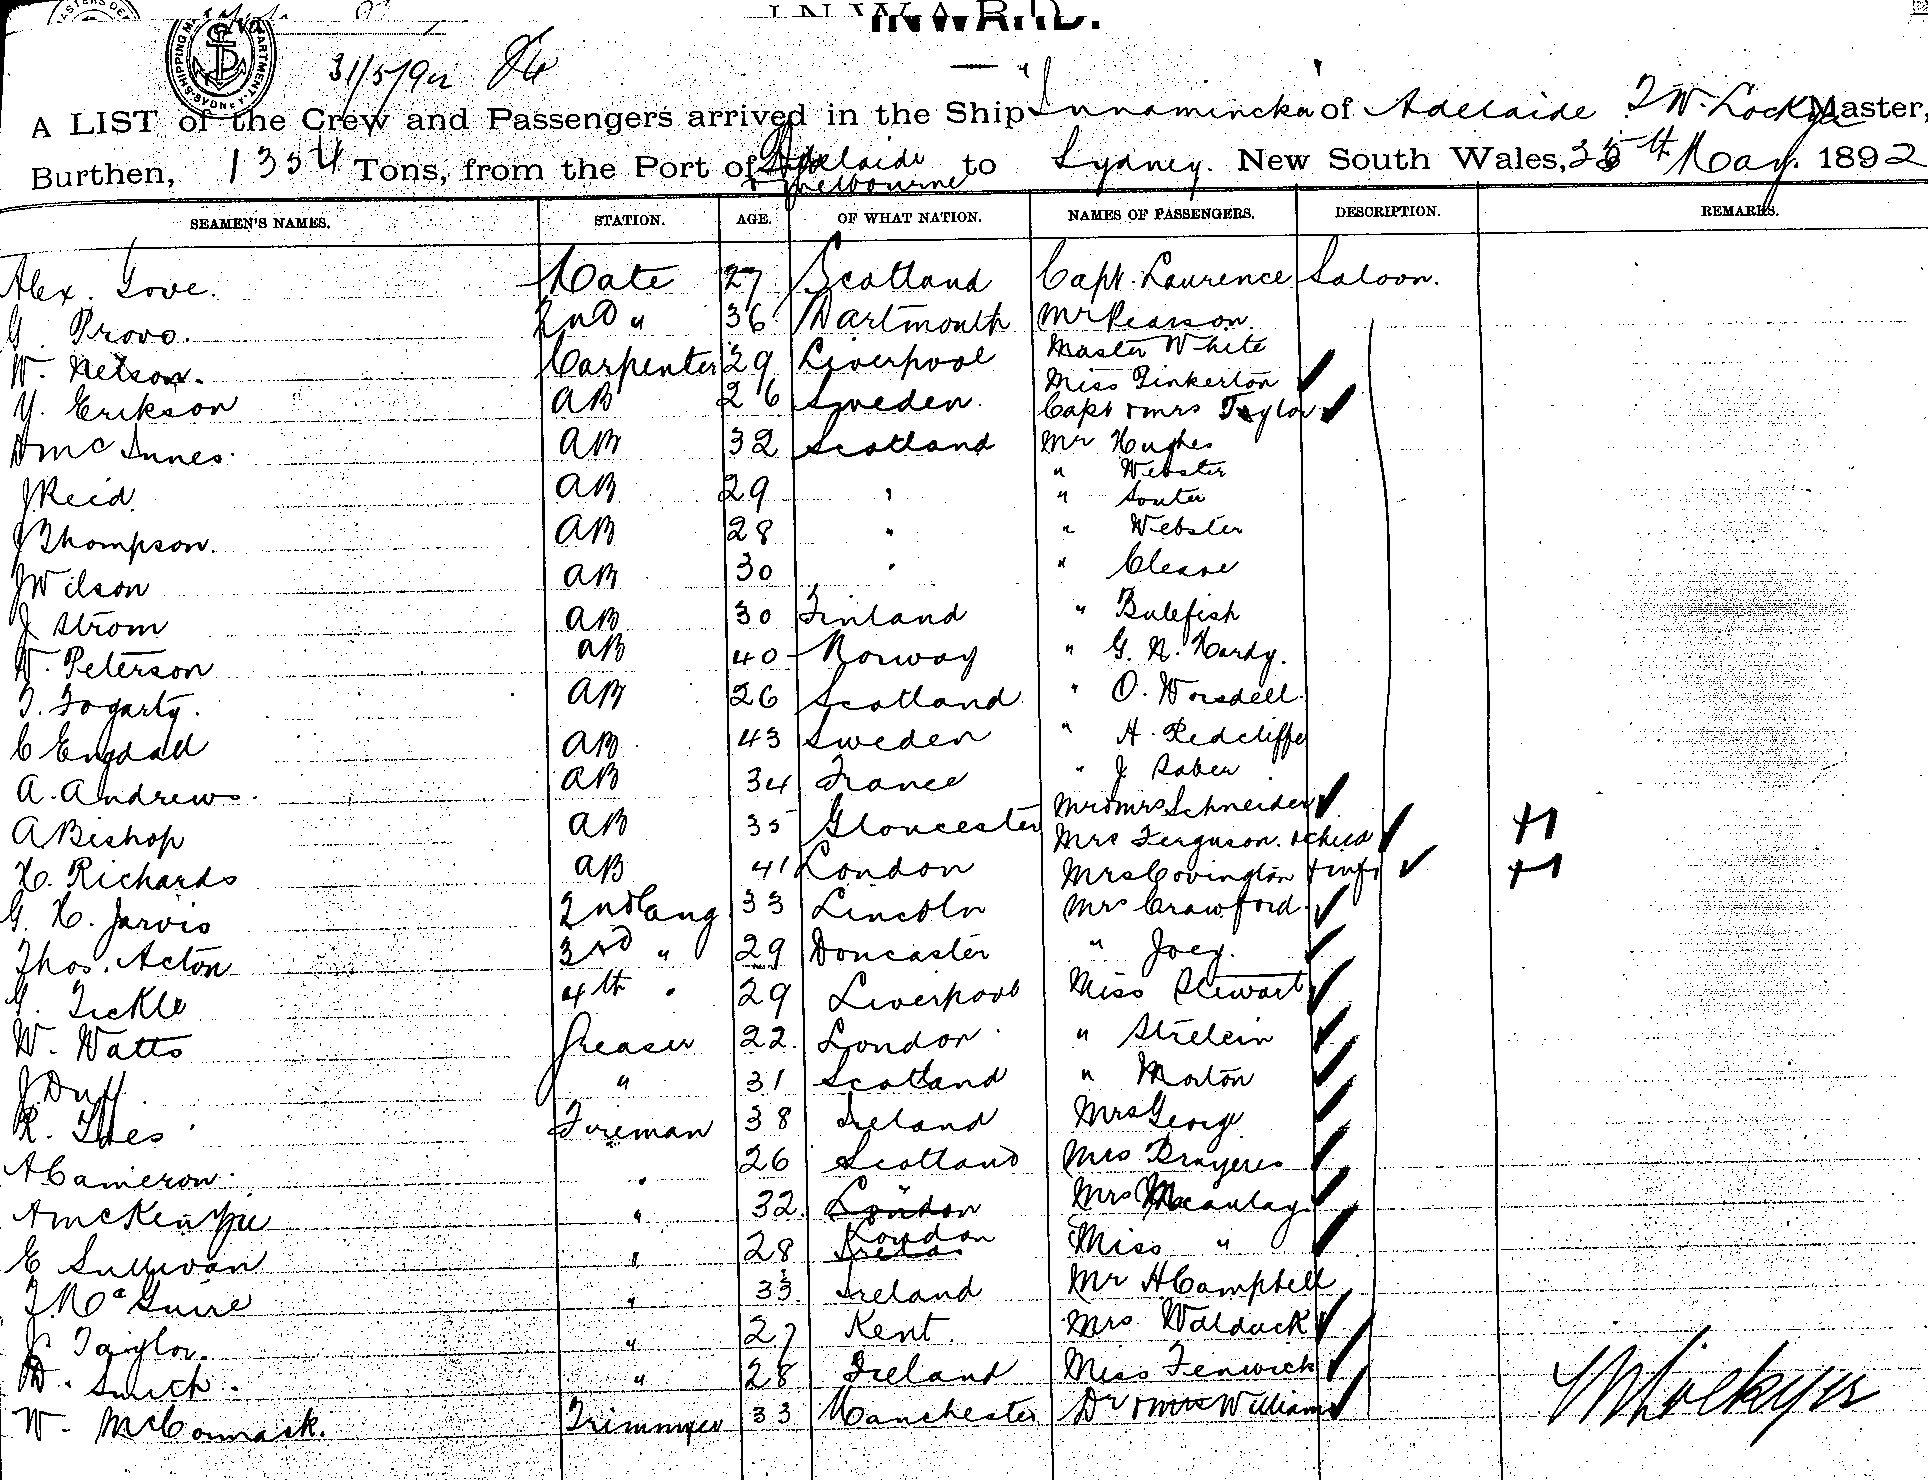 INWARD.
31/5/92
A LIST of the Crew and Passengers arrived in the Ship "Innamincka" of Adelaide T W. Lockyer Master,
Burthen, 1354 Tons, from the Port of Adelaide & Melbourne to Sydney. New South Wales, th May. 1892
SEAMEN'S NAMES. STATION. AGE. OF WHAT NATION. NAMES OF PASSENGERS. DESCRIPTION. REMARKS.
Alex. Gove. Mate 27 Scotland Capt. Laurence Saloon.
G. Provo. 2nd " 36 Dartmouth Mr Pearson
W. Nelson. Carpenter 29 Liverpool Master White
Miss Pinkerton
Y. Erikson AB 26 Sweden. Capt & Mrs Taylor
D McInnes. AB 32 Scotland Mr Hughes
" Webster
J Reid. AB 29 " " Souter
J Thompson. AB 28 " " Webster
J Wilson AB 30 " " Cleave
J Strom AB 30 Finland " Bulefish
W. Peterson AB 40 Norway " G. N. Hardy.
T. Fogarty. AB 26 Scotland " O. Worsdell.
C Engdall AB 43 Sweden " H. Redcliffe
A. Andrews. AB 34 France " J Saber
Mr & Mrs Schneider
A Bishop AB 35 Gloucester Mrs Ferguson. & child
H. Richards AB 41 London Mrs Covington & inft
G. H. Jarvis 2nd Eng 33 Lincoln Mrs Crawford.
Thos. Acton 3rd " 29 Doncaster " Joey.
G. Tickle 4th " 29 Liverpool Miss Stewart
W. Watts Greaser 22. London " Strelein
J Duff " 31 Scotland " Morton
R. Iles Fireman 38 Ireland Mrs Georg
A Cameron. " 26 Scotland Mrs Brayeres
A McKenzie " 32 London Mrs Macaulay
E Sullivan " 28 London Miss "
T. McGuire " 33 Ireland Mr H Campbell
J. Taylor. " 27 Kent. Mrs Walduck
D. Smith. " 28 Ireland Miss Fenwick
W. McCormack. Trimmer 33 Manchester Dr & Mrs Williams
T W Lockyer